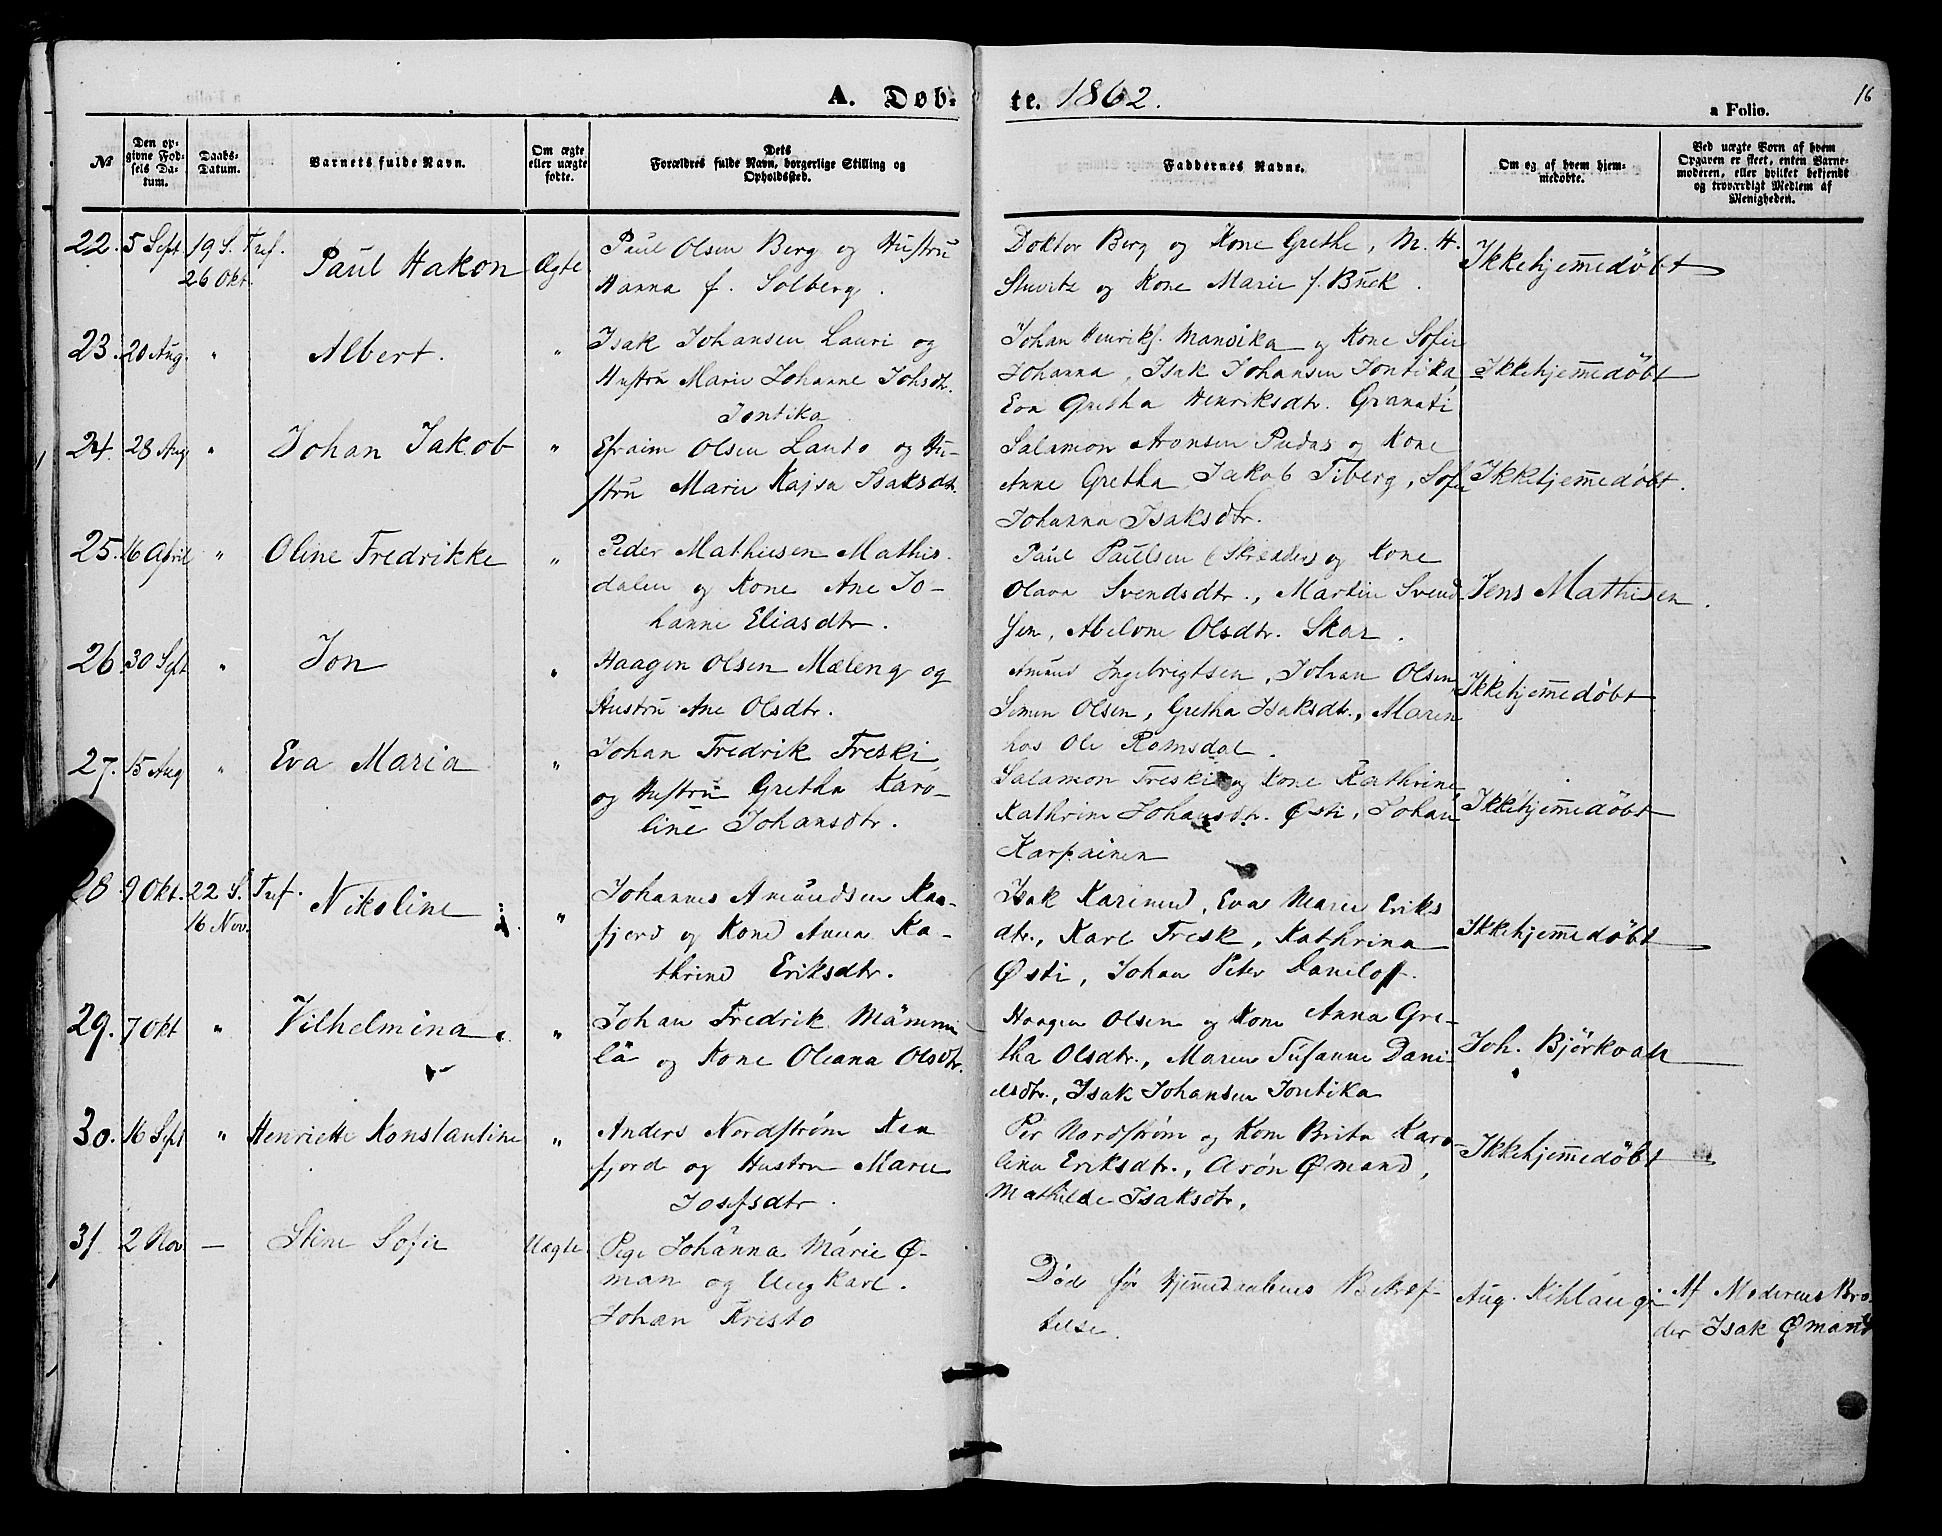 A. Døb-
te. 1862.
16
a Folio.
No
Den op-
givne Fød-
sels Da-
tum.
Daabs-
Datum.
Barnets fulde Navn.
Om ægte
eller uægte
fødte.
Dets
Forældres fulde Navn, borgerlige Stilling og
Opholdssted.
Faddernes Navne.
Om og af hvem hjem-
medøbte.
Ved uægte Børn af hvem
Opgaven er skeet, enten Barne-
moderen, eller hvilket bekjendt
og troværdigt Medlem af
Menigheden.
22. 5 Sept 19 S. Tref.
26 Okt. Paul Hakon Ægte
Paul Olsen Berg og Hustru
Hanna f. Solberg.
Doktor Berg og Kone Grethe, M. H.
og Kone Marie f. Buck.
Ikkehjemmedøbt
23. 20 Aug. " Albert. "
Isak Johansen Lauri og
Hustru Marie Johanne Johsdtr.
Jontika
Johan Henriks. Mansika og Kone Sofie
Johanna, Isak Johansen Jontika
Eva Gretha Henriksdtr. Granati
Ikkehjemmedøbt
24. 28 Aug " Johan Jakob "
Efraim Olsen Lauto og Hu-
stru Marie Kajsa Isaksdtr.
Salamon Aronsen Pudas og Kone
Anne Gretha, Jakob Tiberg, Sofie
Johanna Isaksdtr.
Ikkehjemmedøbt.
25. 16 April " Oline Fredrikke "
Peder Mathiesen Mathis-
dalen og Kone Ane Jo-
hanne Eliasdtr.
Paul Paulsen (Skrædder) og Kone
Olava Svendsdtr., Martin Svend-
sen, Abelone Olsdtr. Skar.
Jens Mathisen.
26 30 Sept " Jon "
Haagen Olsen Mæleng og
Hustru Ane Olsdtr.
Amund Ingebrigtsen, Johan Olsen
Simen Olsen, Gretha Isaksdtr., Maren
hos Ole Romsdal.
Ikkehjemmedøbt
27. 15 Aug " Eva Maria "
Johan Fredrik Freski
og Hustru Gretha Karo-
line Johansdtr.
Salamon Freski og Kone Kathrine
Kathrine Johansdtr. Østi, Johan
Karpainen
Ikkehjemmedøbt
28. 9 Okt. 22 S. Tref.
16 Nov. Nikoline "
Johannes Amundsen Kaa-
fjord og Kone Anna Ka-
thrine Eriksdtr.
Isak Karinen, Eva Marie Eriks
dtr., Karl Fresk, Kathrina
Østi, Johan Peter Danielof.
Ikkehjemmedøbt
29. 7 Okt " Vilhelmina. "
Johan Fredrik Mämmi
lä og Kone Oleana Olsdtr.
Haagen Olsen og Kone Anna Gre-
tha Olsdtr., Maren Susanne Dani-
elsdtr., Isak Johansen Jontika
Joh. Björkvall
30. 16 Sept " Henriette Konstantine "
Anders Nordstrøm
fjord og Hustru Marie
Josefsdtr.
Per Nordstrøm og Kone Brita Karo-
lina Eriksdtr., Arøn Ømand,
Mathilde Isaksdtr.
Ikkehjemmedøbt
31. 2 Nov — Stine Sofie Uægte
Pige Johanna Marie Ø-
man og Ungkarl.
Johan Kristo
Død før Hjemmedaabens Bekræf-
telse.
Aug. Kihlangi
Af Moderens Bro-
der Isak Ømand